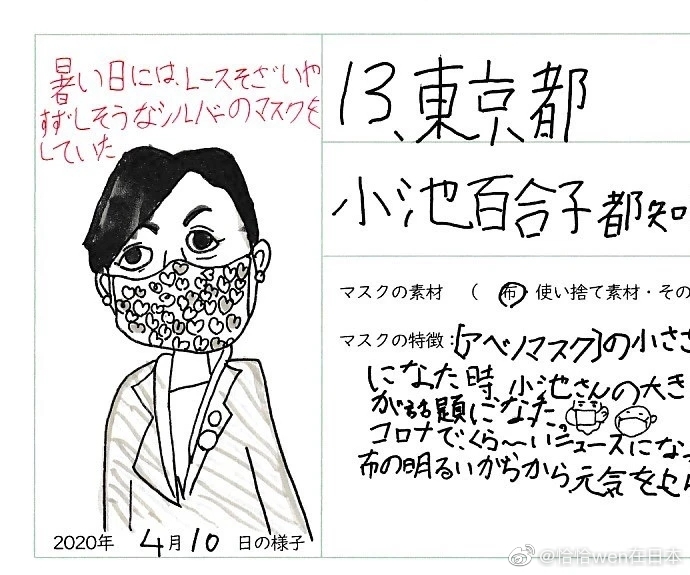 暑い日には、レースそざいや
すずしそうなシルバーのマスクを
していた
2020年 4月10 日の様子
13、東京都
小池百合子 都知
マスクの素材 ( 布・使い捨て素材・その
マスクの特徴:[アベノマスク]の小ささ
になった時、小池さんの大き
が話題になった。
コロナで、くら〜いニュースになっ
布の明るいがらから元気を
@恰恰wen在日本